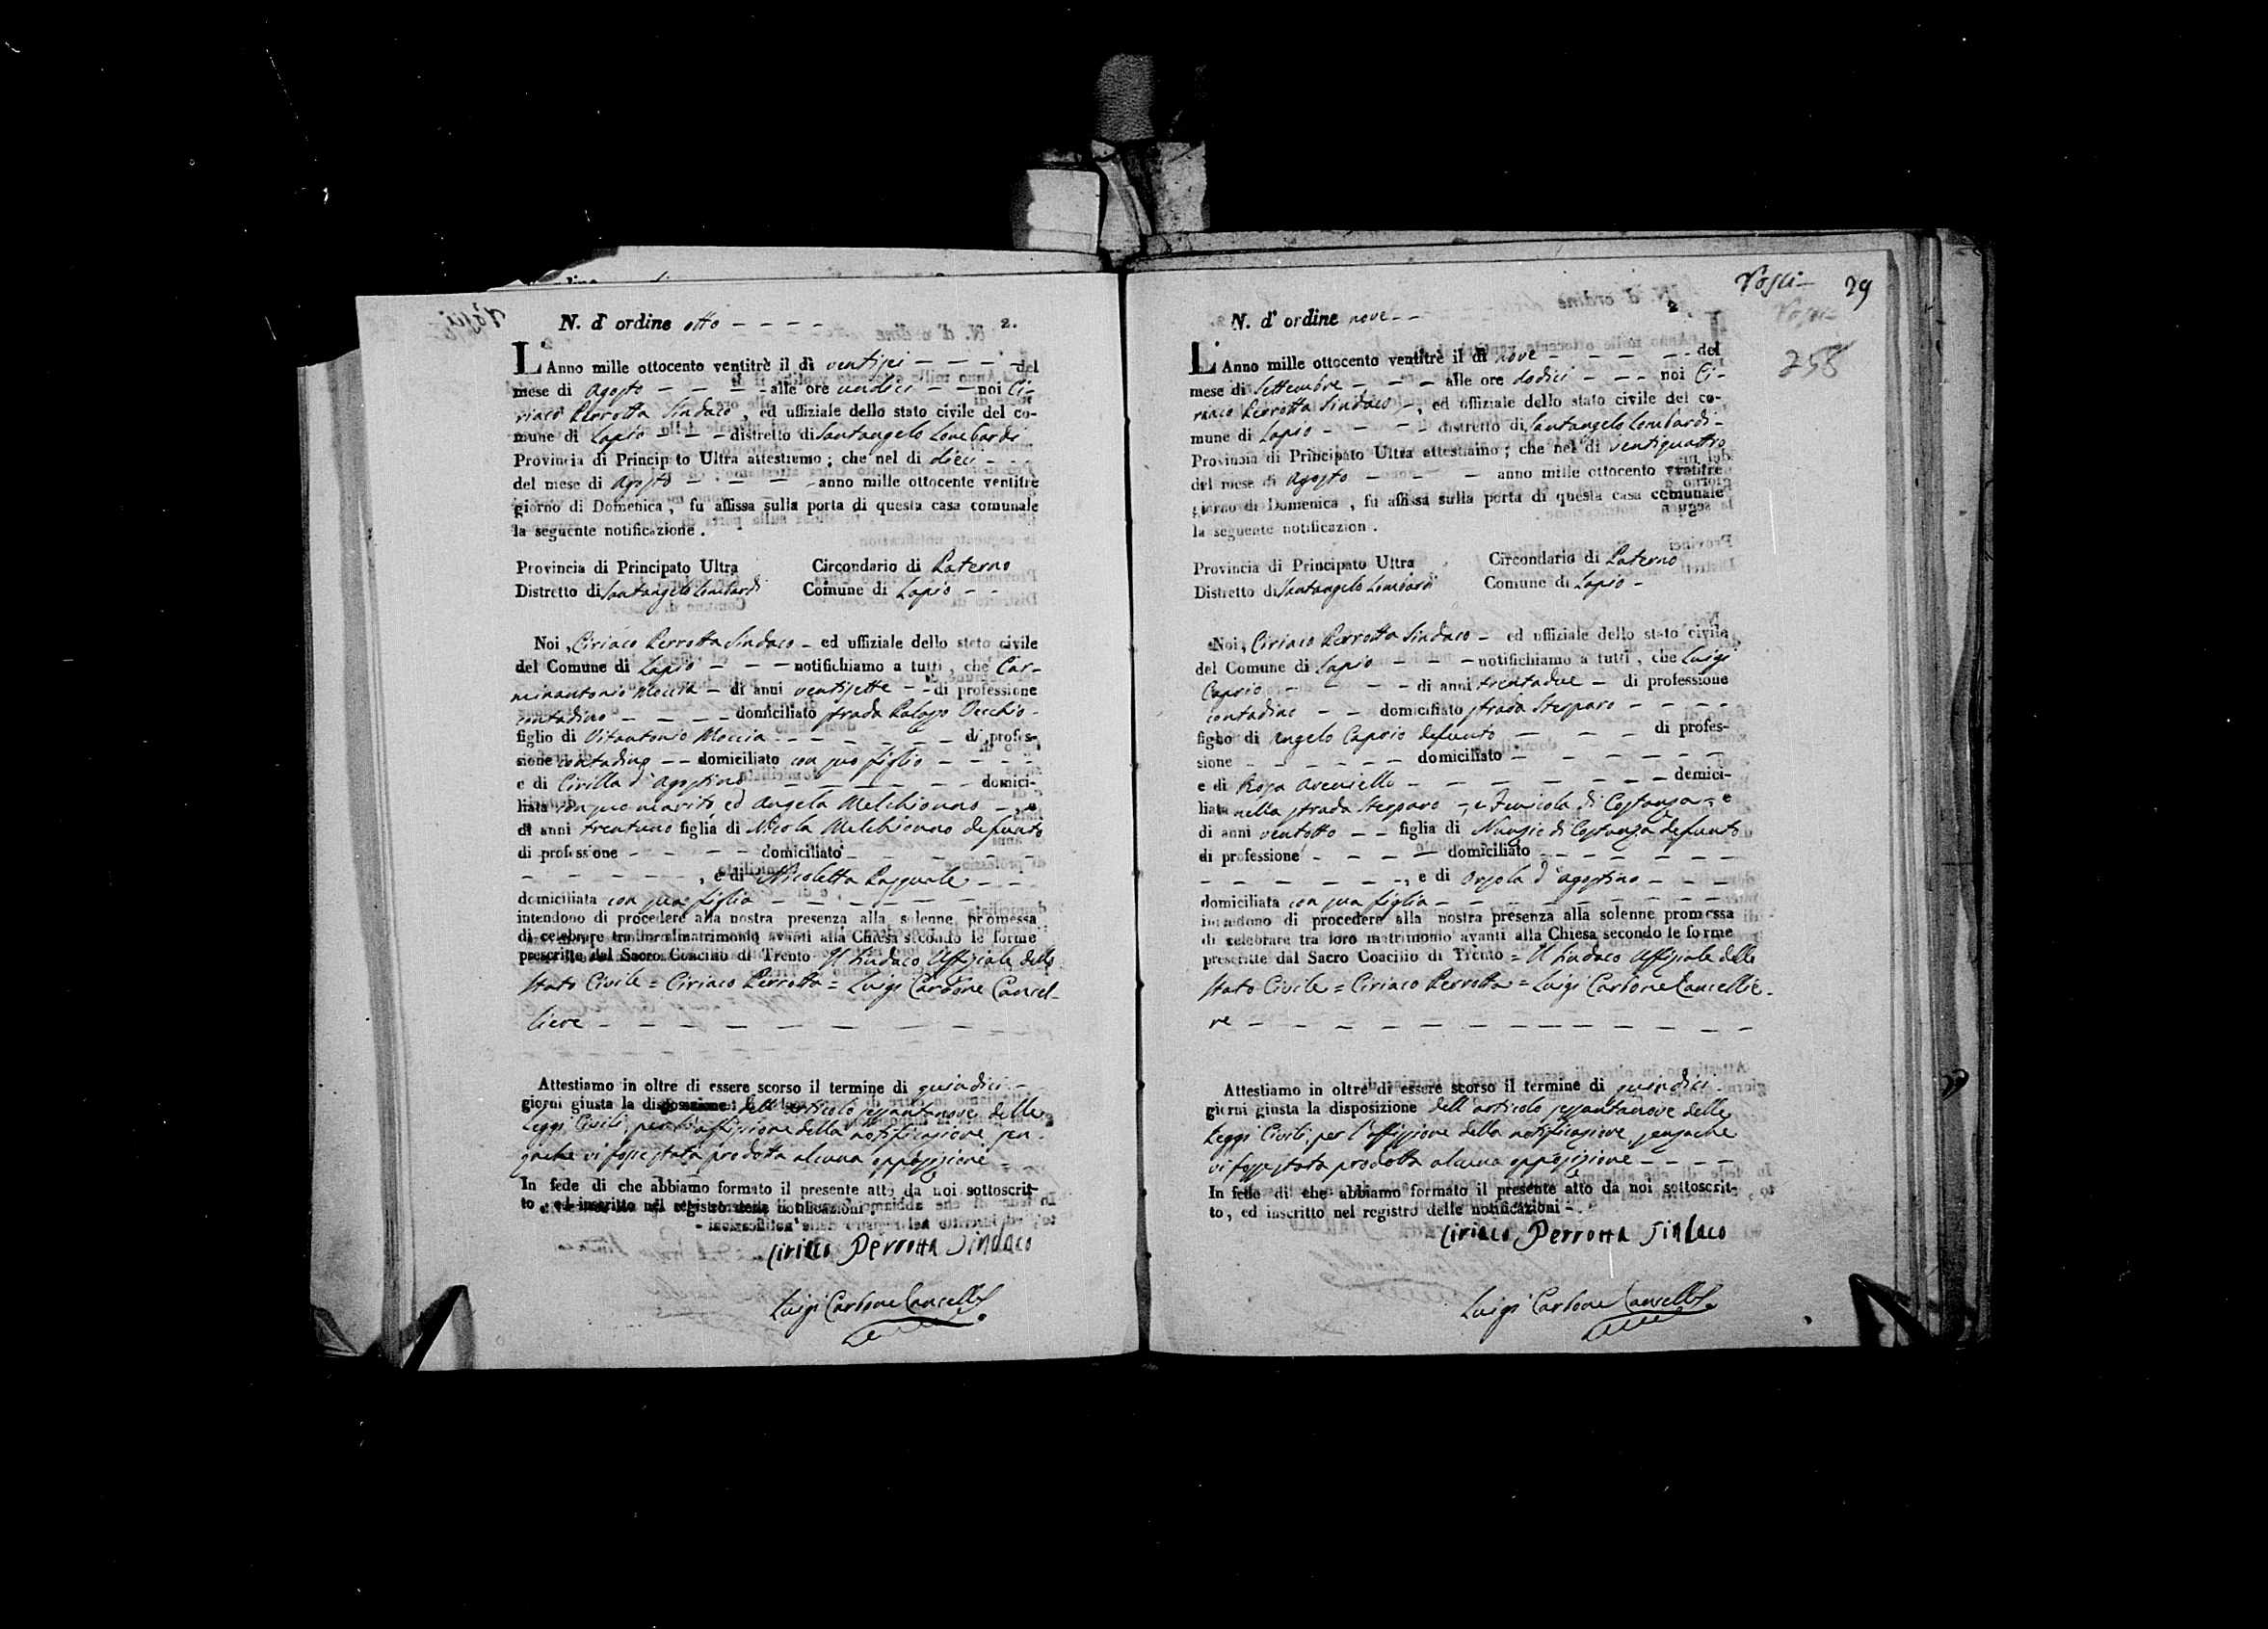 N. d' ordine otto - - - - 2.
L'Anno mille ottocento ventitrè il dì ventisei - - - - del
mese di Agosto - - - - alle ore undici - - noi Ci-
riaco Perrotta Sindaco, ed uffiziale dello stato civile del co-
mune di Lapio - - - distretto di Santangelo Lombardi
Provincia di Principato Ultra attestiamo; che nel di dieci - -
del mese di Agosto - - - - anno mille ottocento ventitre
giorno di Domenica, fu affissa sulla porta di questa casa comunale
la seguente notificazione.
Provincia di Principato Ultra Circondario di Paterno
Distretto di Santangelo Lombardi Comune di Lapio - -
Noi, Ciriaco Perrotta Sindaco - ed uffiziale dello stato civile
del Comune di Lapio - - - notifichiamo a tutti, che Car-
minantonio Moccia - di anni ventisette - - di professione
contadino - - - - domiciliato strada Palazzo Vecchio -
figlio di Vitantonio Moccia - - - - - - - di profes-
sione contadino - - domiciliato con suo figlio - - - -
e di Cirilla d'Agostino - - - - - - domici-
liata con suo marito, ed Angela Melchionno -, e
di anni trentuno figlia di Nicola Melchionno defunto
di professione - - - - domiciliato - - - - - -
- - - - - -, e di Nicoletta Pasquale - - -
domiciliata con sua figlia - - - - - - -
intendono di procedere alla nostra presenza alla solenne promessa
di celebrare tra loro matrimonio avanti alla Chiesa secondo le forme
prescritte dal Sacro Concilio di Trento = Il Sindaco Uffiziale dello
Stato Civile = Ciriaco Perrotta = Luigi Carbone Cancel-
liere - - - - - - - - - -
Attestiamo in oltre di essere scorso il termine di quindici -
giorni giusta la disposizione dell'articolo sessantanove delle
Leggi Civili, per l'affissione della notificazione, sen-
zache vi fosse stata prodotta alcuna opposizione =
In fede di che abbiamo formato il presente atto da noi sottoscrit-
to, ed inscritto nel registro delle notificazioni.
Ciriaco Perrotta Sindaco
Luigi Carbone Cancell.
29
258
N. d' ordine nove - - 2.
L'Anno mille ottocento ventitrè il dì nove - - - - - del
mese di Settembre - - - alle ore dodici - - - noi Ci-
riaco Perrotta Sindaco -, ed uffiziale dello stato civile del co-
mune di Lapio - - - - distretto di Santangelo Lombardi -
Provincia di Principato Ultra attestiamo; che nel di ventiquattro
del mese di Agosto - - - - anno mille ottocento ventitre
giorno di Domenica, fu affissa sulla porta di questa casa comunale
la seguente notificazion.
Provincia di Principato Ultra Circondario di Paterno
Distretto di Santangelo Lombardi Comune di Lapio -
Noi, Ciriaco Perrotta Sindaco - ed uffiziale dello stato civile
del Comune di Lapio - - - notifichiamo a tutti, che Luigi
Caprio - - - - di anni trentadue - di professione
contadino - - domiciliato strada Sterparo - - - -
figlio di Angelo Caprio defunto - - - di profes-
sione - - - - - - domiciliato - - - - - - -
e di Rosa - - - - - - - domici-
liata nella strada Sterparo -, e di Costanza -, e
di anni ventotto - - figlia di Nunzio di Costanza defunto
di professione - - - - domiciliato - - - - - - -
- - - - - - -, e di Orsola d'Agostino - - - -
domiciliata con sua figlia - - - - - - - - -
intendono di procedere alla nostra presenza alla solenne promessa
di celebrare tra loro matrimonio avanti alla Chiesa secondo le forme
prescritte dal Sacro Concilio di Trento = Il Sindaco Uffiziale dello
Stato Civile = Ciriaco Perrotta = Luigi Carbone Cancellie-
re - - - - - - - - - - - - -
Attestiamo in oltre di essere scorso il termine di quindici -
giorni giusta la disposizione dell'articolo sessantanove delle
Leggi Civili, per l'affissione della notificazione, senzache
vi fosse stata prodotta alcuna opposizione - - - -
In fede di che abbiamo formato il presente atto da noi sottoscrit-
to, ed inscritto nel registro delle notificazioni -.
Ciriaco Perrotta Sindaco
Luigi Carbone Cancell.